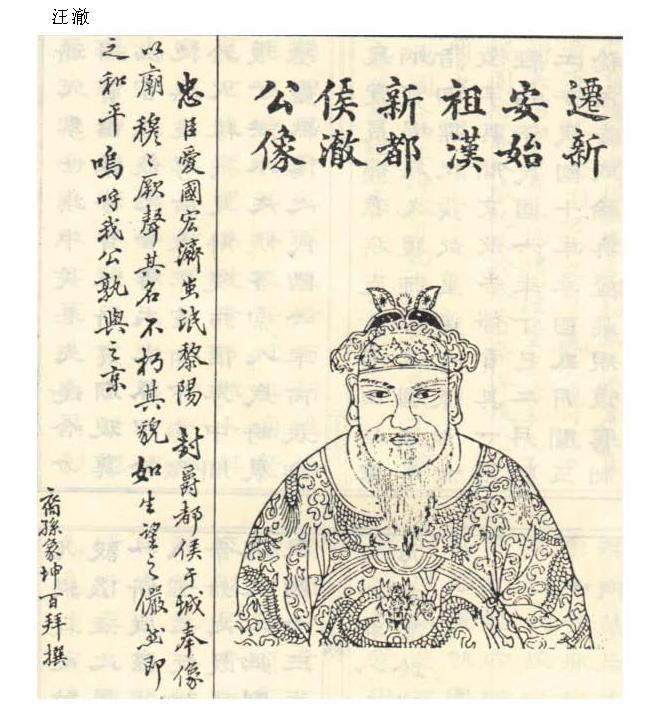 汪澈
遷新
安始
祖漢
新都
侯澈
公像
忠臣愛國宏濟蚩氓黎陽 封爵都侯于城奉像
以廟穆々厥聲其名不朽其貌如生望之儼然即
之和平嗚呼我公孰與之京
裔孫象坤百拜撰